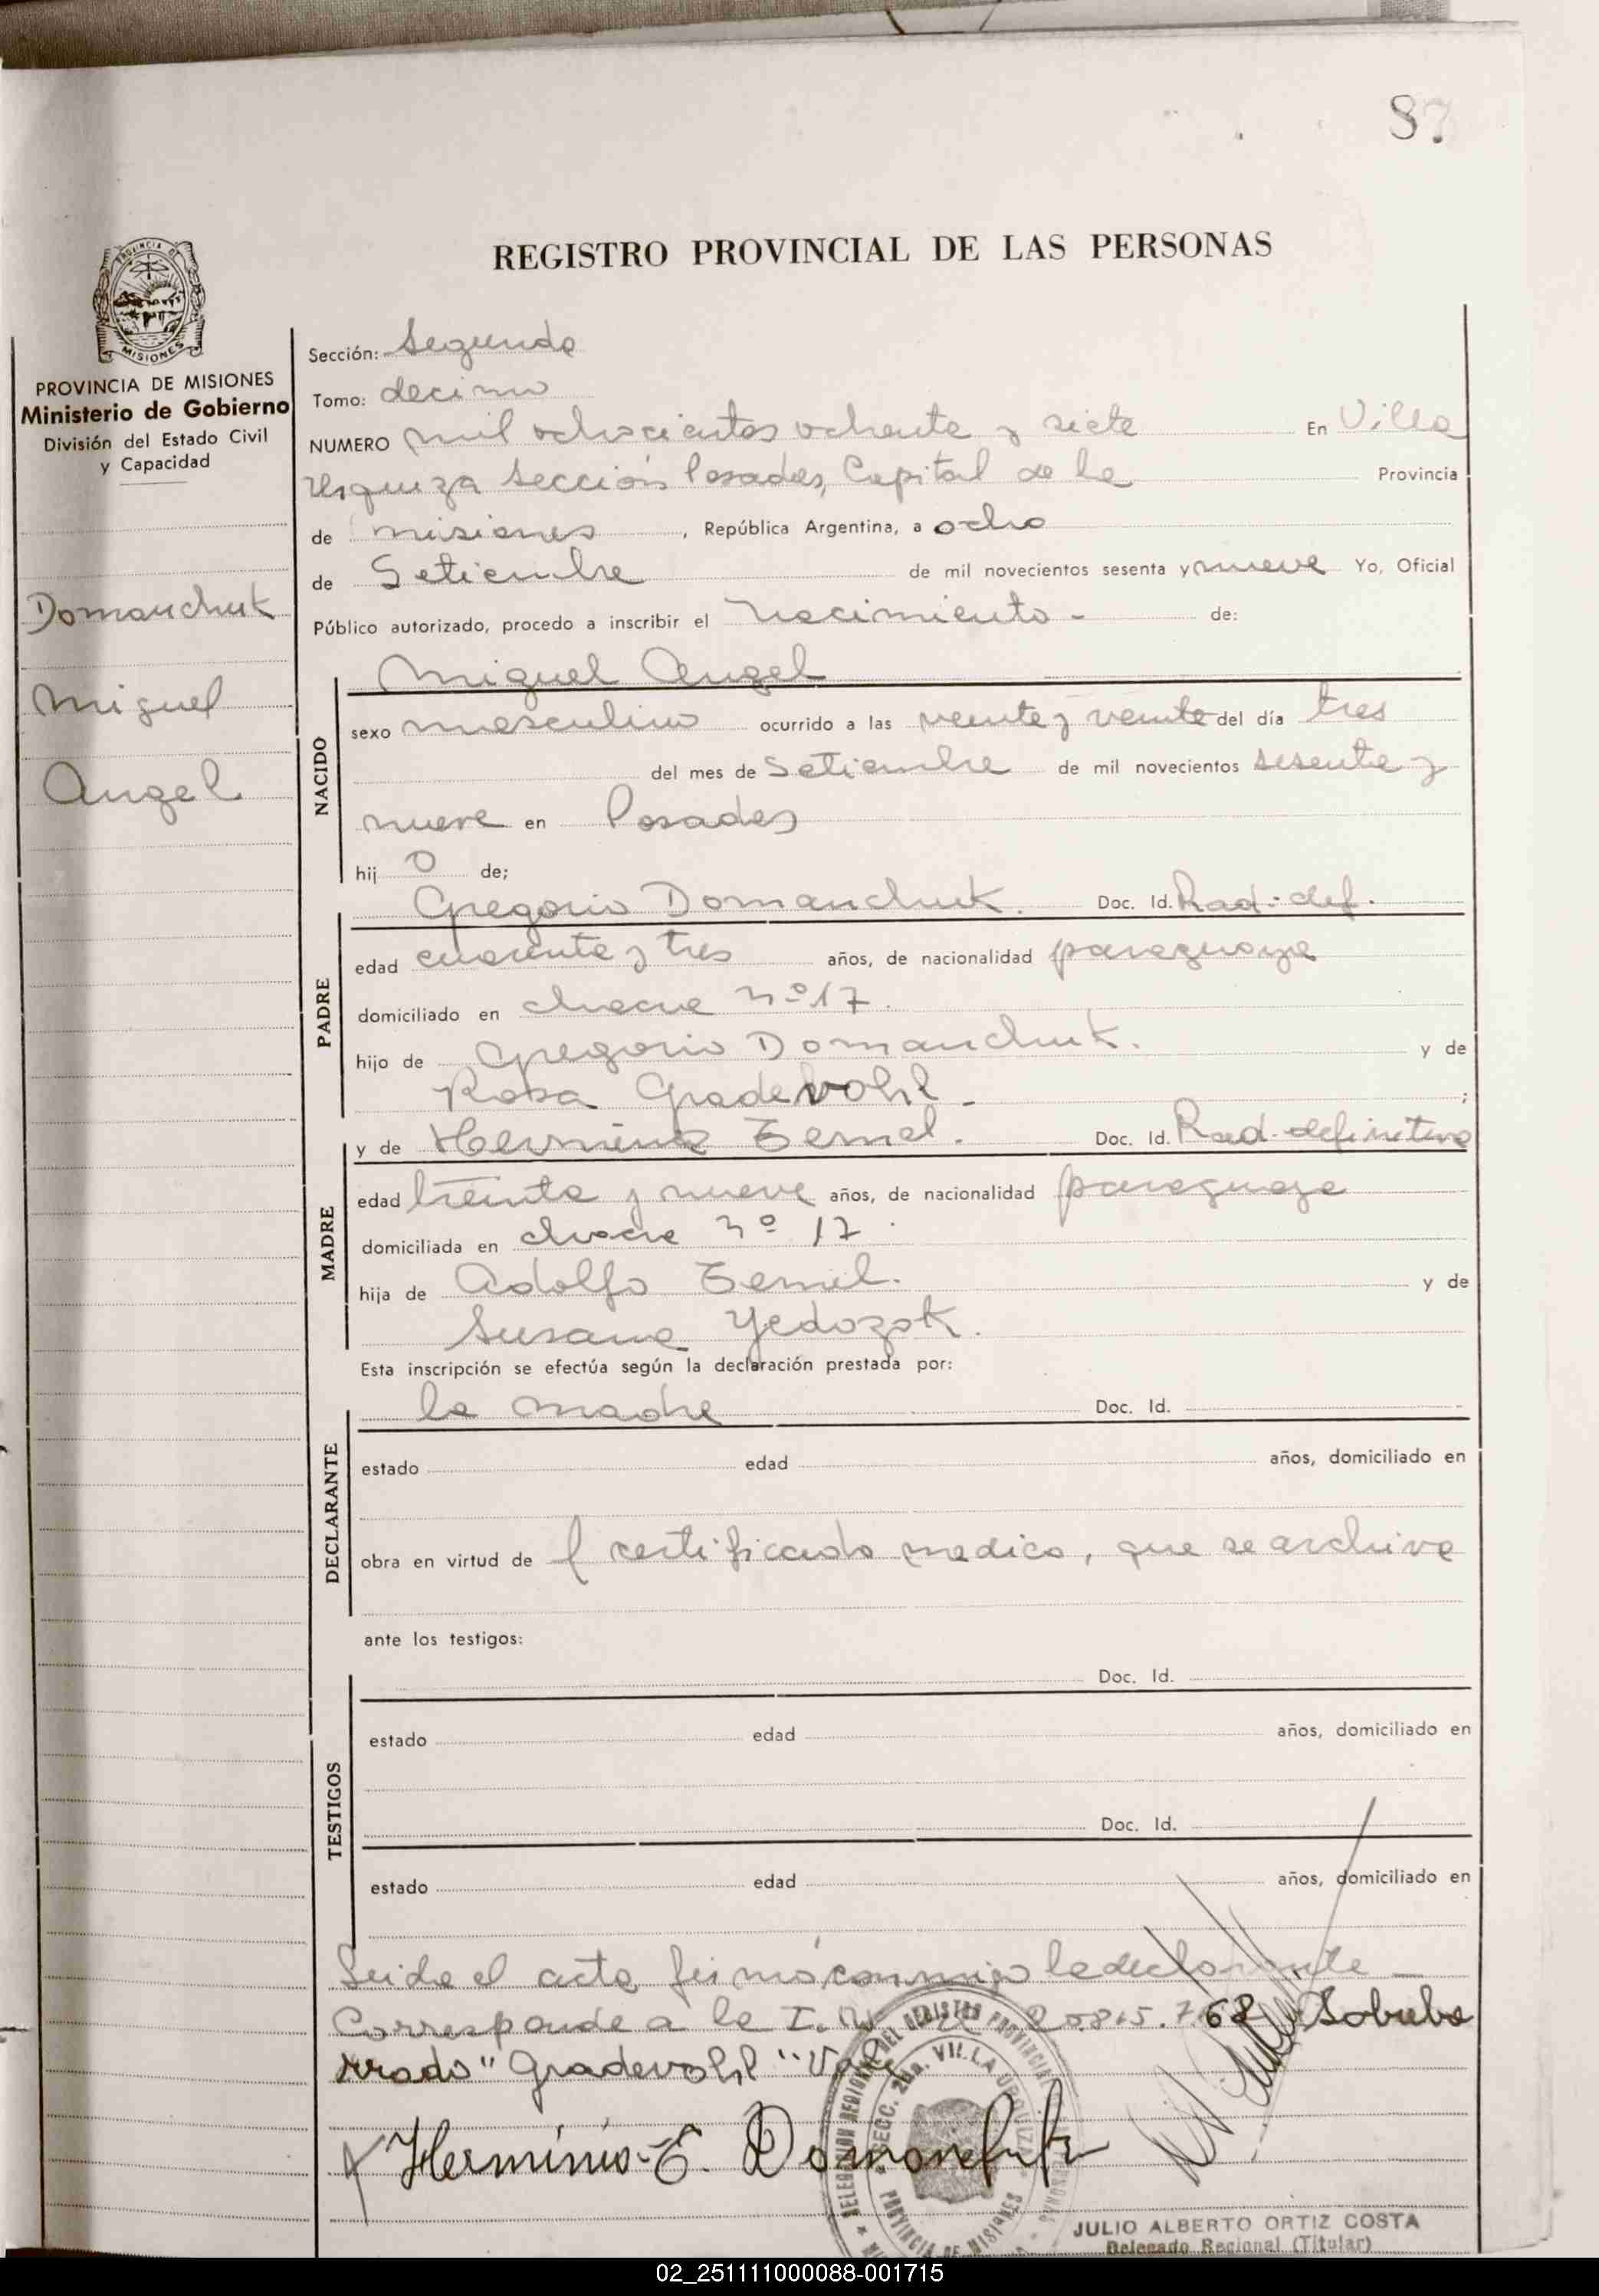 87
REGISTRO PROVINCIAL DE LAS PERSONAS
PROVINCIA DE MISIONES
Ministerio de Gobierno
División del Estado Civil
y Capacidad
Domanchuk
Miguel
Angel
Sección: Segunda
Tomo: decimo
NUMERO mil ochocientos ochenta y siete En Villa
Urquiza Sección Posadas, Capital de la Provincia
de misiones, República Argentina, a ocho
de Setiembre de mil novecientos sesenta y nueve Yo, Oficial
Público autorizado, procedo a inscribir el Nacimiento - de:
Miguel Angel
NACIDO
sexo masculino ocurrido a las veinte y veinte del día tres
del mes de Setiembre de mil novecientos sesenta y
nueve en Posadas
hij o de;
Gregorio Domanchuk. Doc. Id. Rad. def.
PADRE
edad cuarenta y tres años, de nacionalidad paraguaya
domiciliado en chacra nº 17.
hijo de Gregorio Domanchuk. y de
Rosa Gradevohl - ;
y de Zemel. Doc. Id. Rad. definitiva
MADRE
edad treinta y nueve años, de nacionalidad paraguaya
domiciliada en chacra nº 17.
hija de Adolfo Zemel. y de
Susana Yedozok.
Esta inscripción se efectúa según la declaración prestada por:
la madre Doc. Id.
DECLARANTE
estado edad años, domiciliado en
obra en virtud de l certificado medico, que se archiva
ante los testigos:
Doc. Id.
TESTIGOS
estado edad años, domiciliado en
Doc. Id.
estado edad años, domiciliado en
Leida el acta firmó conmigo la declarante -
Corresponde a la I. 68 Sobreba
rrado "Gradevohl" Vale
DELEGACION REGIONAL DEL REGISTRO PROVINCIAL
SECC. 2da. VILLA URQUIZA
PROVINCIA DE MISIONES
JULIO ALBERTO ORTIZ COSTA
Delegado Regional (Titular)
02_251111000088-001715